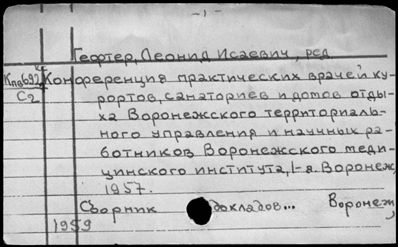 - 1 -
Гефтер, Леонид Исаевич, ред
Кпв692 Конференция практических врачей ку-
С2 рортов, санаториев и домов отды-
ха Воронежского территориаль-
ного управления и научных ра-
ботников Воронежского меди-
цинского института, 1-я. Воронеж,
1957.
Сборник докладов... Воронеж,
1959